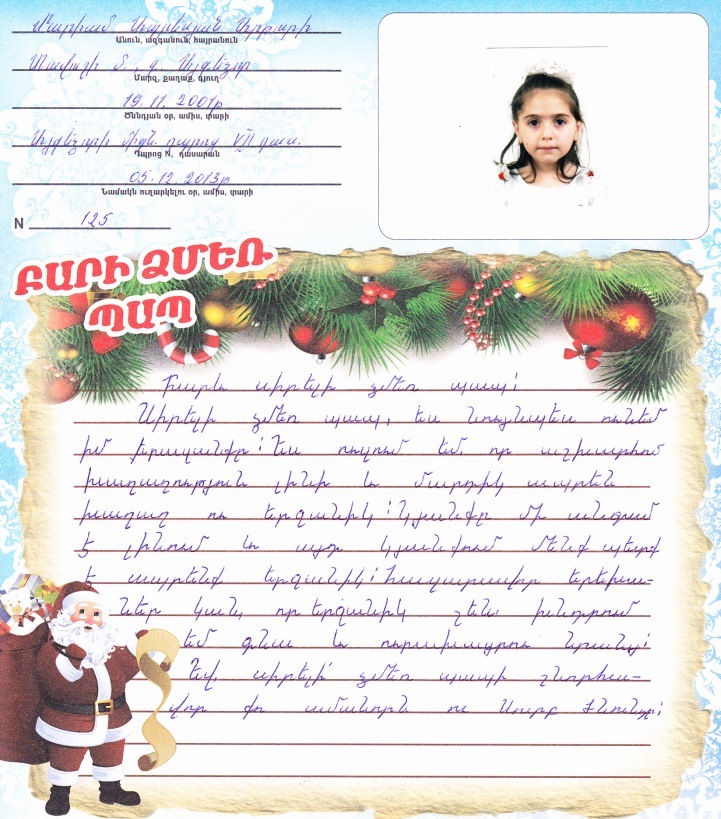 Մարիամ Առաքելյան Արթուրի
Անուն, ազգանուն, հայրանուն
Մարզ, քաղաք, գյուղ
19.11.2001թ
Ծննդյան օր, ամիս, տարի
միջն. դպրոց VII դաս.
Դպրոց N, դասարան
05.12.2013թ
Նամակն ուղարկելու օր, ամիս, տարի
N 125
ԲԱՐԻ ՁՄԵՌ
ՊԱՊ
Բարև սիրելի ձմեռ պապ։
Սիրելի ձմեռ պապ, ես նույնպես ունեմ
իմ երազանքը։ Ես ուզում եմ, որ աշխարհում
խաղաղություն լինի և մարդիկ ապրեն
խաղաղ ու երջանիկ։ Կյանքը մի անգամ
է լինում և այդ կյանքում մենք պետք
է ապրենք երջանիկ։ Հազարավոր երեխա-
ներ կան, որ երջանիկ չեն։ Խնդրում
եմ գնաս և ուրախացրու նրանց։
Եվ, սիրելի՛ ձմեռ պապի շնորհա-
վոր քո ամանորն ու Սուրբ Ծնունդը։